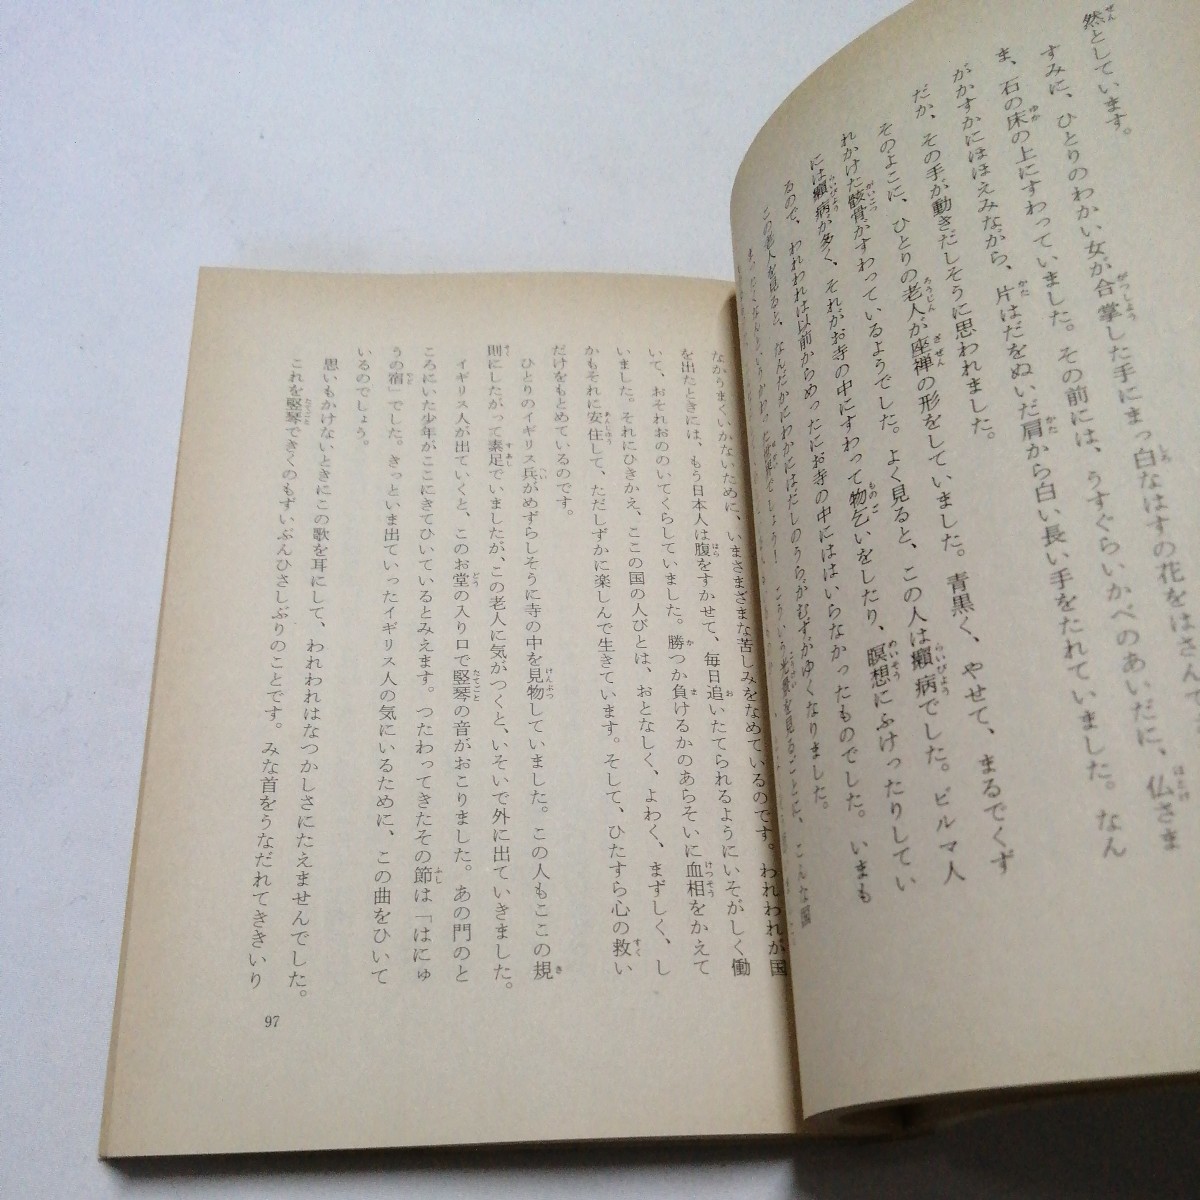 然としています。
すみに、ひとりのわかい女が合掌した手にまっ白なはすの花をはさん
ま、石の床の上にすわっていました。その前には、うすぐらいかべのあいだに、仏さま
がかすかにほほえみながら、片はだをぬいだ肩から白い長い手をたれていました。なん
だか、その手が動きだしそうに思われました。
そのよこに、ひとりの老人が座禅の形をしていました。青黒く、やせて、まるでくず
れかけた骸骨がすわっているようでした。よく見ると、この人は癩病でした。ビルマ人
には癩病が多く、それがお寺の中にすわって物乞いをしたり、瞑想にふけったりしてい
るので、われわれは以前からめったにお寺の中にははいらなかったものでした。いまも
この老人を見ると、なんだかにわかにはだしのうらがむずがゆくなりました。
こういう光景を見るごとに、こんな国
なかうまくいかないために、いまさまざまな苦しみをなめているのです。われわれが国
を出たときには、もう日本人は腹をすかせて、毎日追いたてられるようにいそがしく働
いて、おそれおののいてくらしていました。勝つか負けるかのあらそいに血相をかえて
いました。それにひきかえ、ここの国の人びとは、おとなしく、よわく、まずしく、し
かもそれに安住して、ただしずかに楽しんで生きています。そして、ひたすら心の救い
だけをもとめているのです。
ひとりのイギリス兵がめずらしそうに寺の中を見物していました。この人もここの規
則にしたがって素足でいましたが、この老人に気がつくと、いそいで外に出ていきました。
イギリス人が出ていくと、このお堂の入り口で竪琴の音がおこりました。あの門のと
ころにいた少年がここにきてひいているとみえます。つたわってきたその節は「はにゅ
うの宿」でした。きっといま出ていったイギリス人の気にいるために、この曲をひいて
いるのでしょう。
思いもかけないときにこの歌を耳にして、われわれはなつかしさにたえませんでした。
これを竪琴できくのもずいぶんひさしぶりのことです。みな首をうなだれてききいり
97